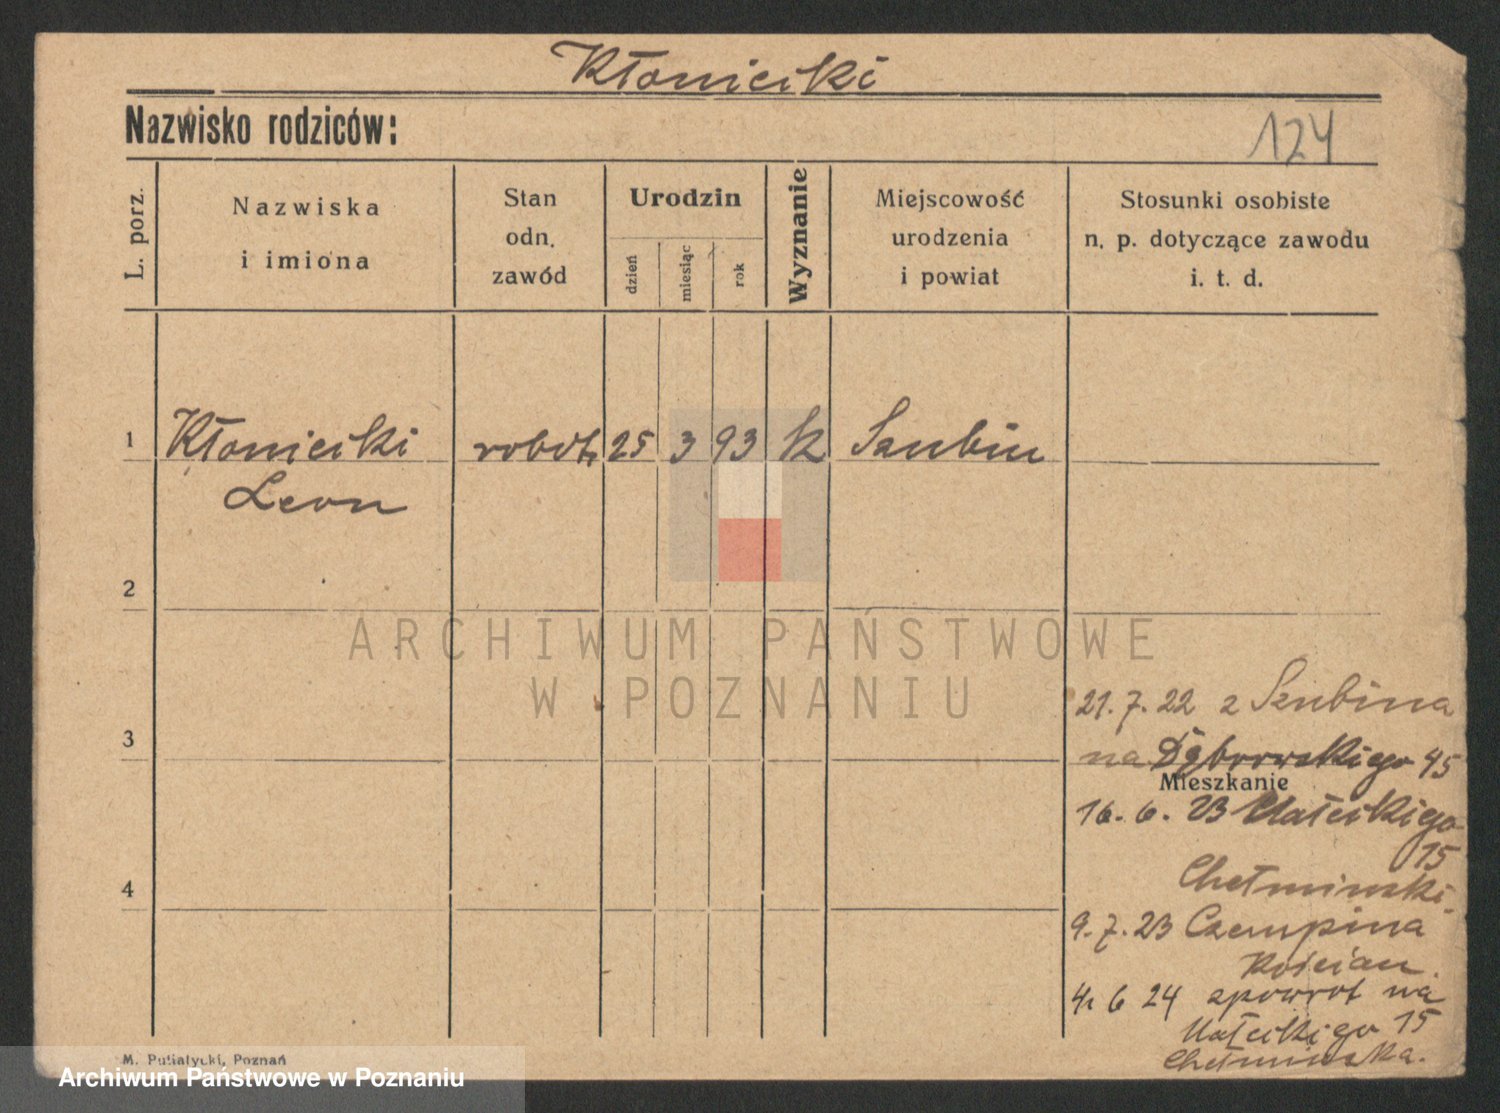 Kłoniecki
Nazwisko rodziców:
124
L. porz.
Nazwiska
i imiona
Stan
odn.
zawód
Urodzin
dzień
miesiąc
rok
Wyznanie
Miejscowość
urodzenia
i powiat
Stosunki osobiste
n. p. dotyczące zawodu
i. t. d.
1 Kłoniecki robotn 25 3 93 k Szubin
Leon
2
ARCHIWUM PAŃSTWOWE
W POZNANIU
21. 7. 22 z Szubina
3
na Dąbrowskiego 45
Mieszkanie
16. 6. 23 Małeckiego
15
4
Chełmiński.
9. 7. 23 Czempina
Kościan.
4. 6 24 spowrot na
Małeckiego 15
Chełmińska.
M. Putiatycki, Poznań
Archiwum Państwowe w Poznaniu